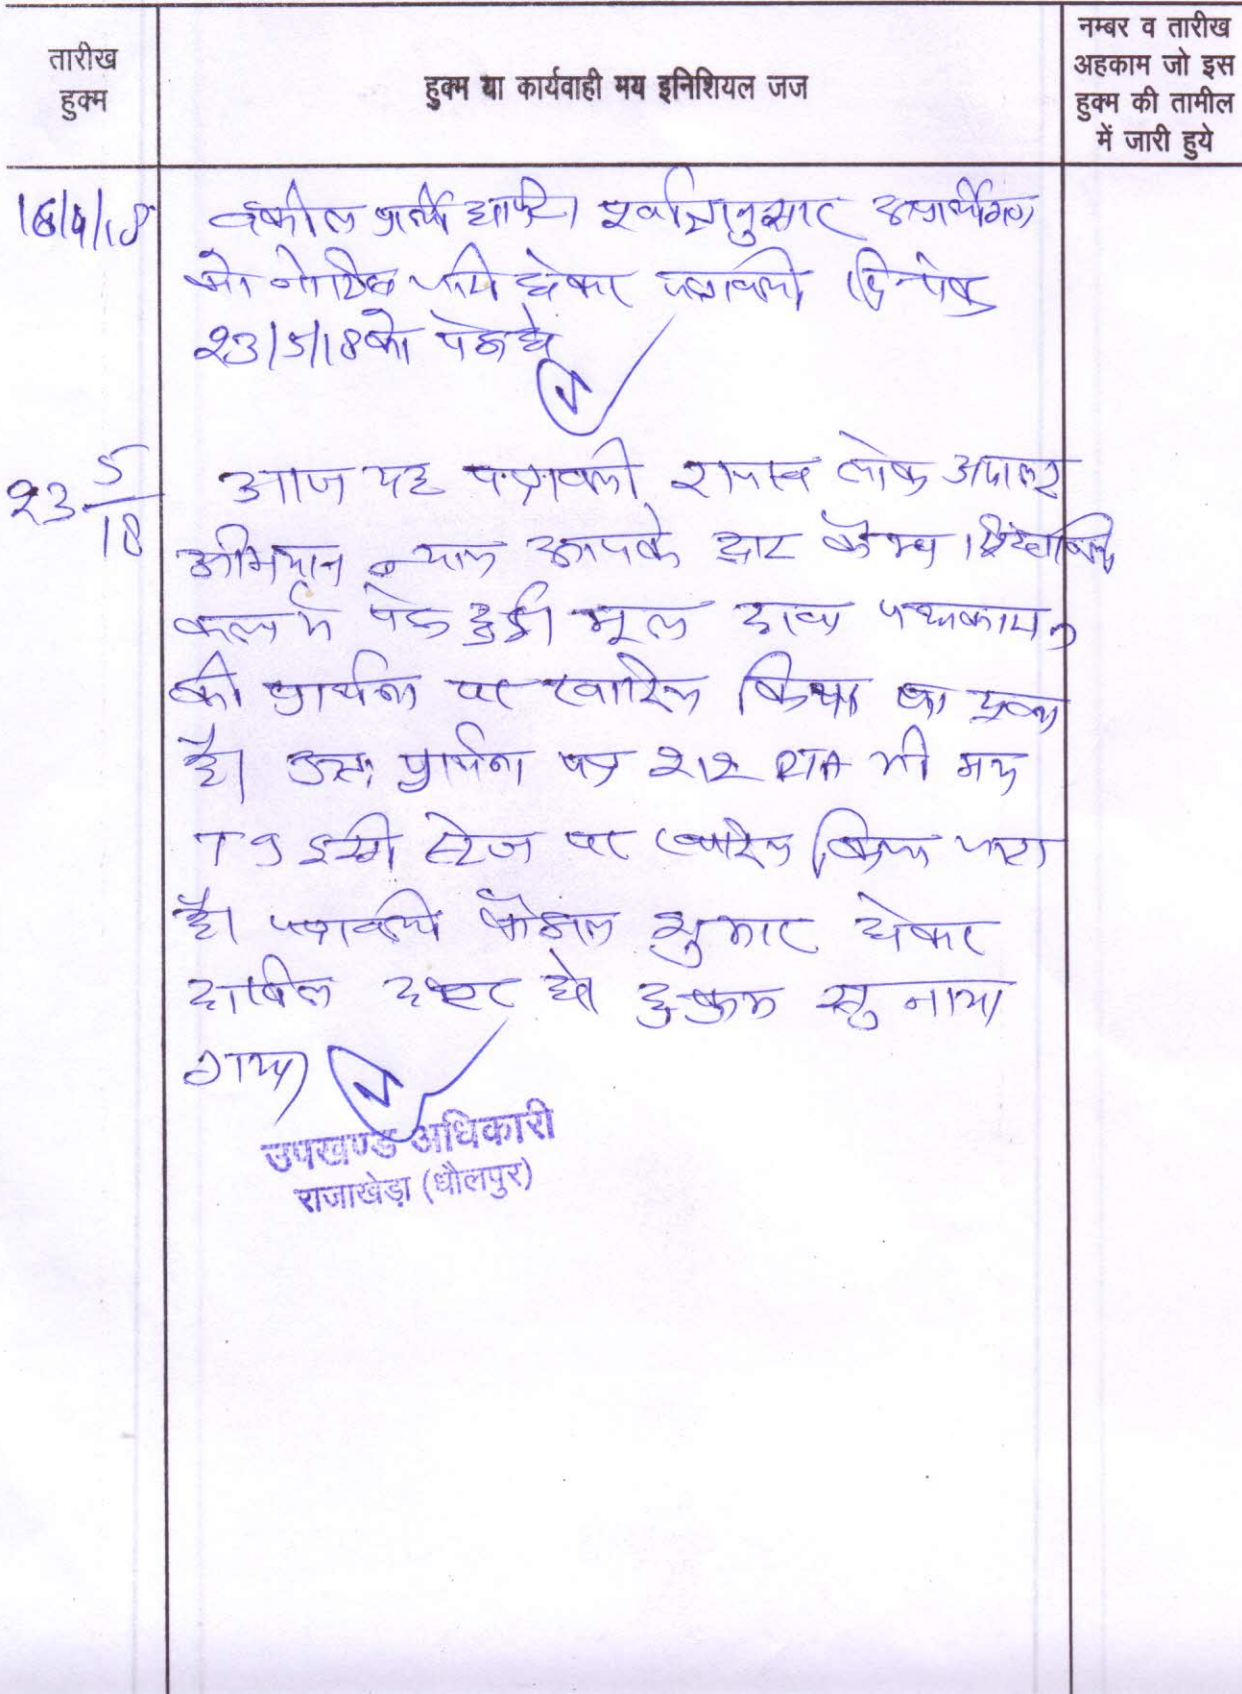 तारीख
हुक्म
हुक्म या कार्यवाही मय इनिशियल जज
नम्बर व तारीख
अहकाम जो इस
हुक्म की तामील
में जारी हुये
16/4/18 वकील प्रार्थी हाजिर। पूर्वाज्ञानुसार अप्रार्थीगण
को नोटिस जारी होकर पत्रावली दिनांक
23/5/18 को पेश हो
23 5/18 आज यह पत्रावली राजस्व लोक अदालत
अभियान न्याय आपके द्वार कैम्प
कलां में पेश हुई। मूल दावा पक्षकारान
की प्रार्थना पर खारिज किया जा चुका
है। अतः प्रार्थना पत्र 212 RTA भी मय
T I इसी स्टेज पर खारिज किया जाता
है। पत्रावली फैसल शुमार होकर
दाखिल दफ्तर हो। हुकुम सुनाया
गया
उपखण्ड अधिकारी
राजाखेड़ा (धौलपुर)